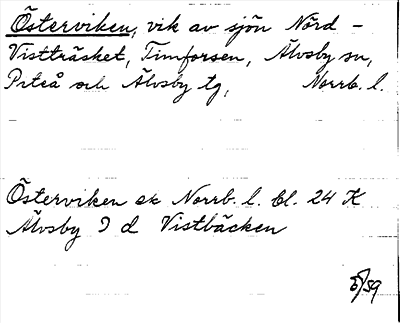 Österviken, vik av sjön Nörd-
Vistträsket, Timforsen, Älvsby sn,
Piteå och Älvsby tg, Norrb. l.
Österviken ek Norrb. l. bl. 24 K
Älvsby I d Vistbäcken
5/59